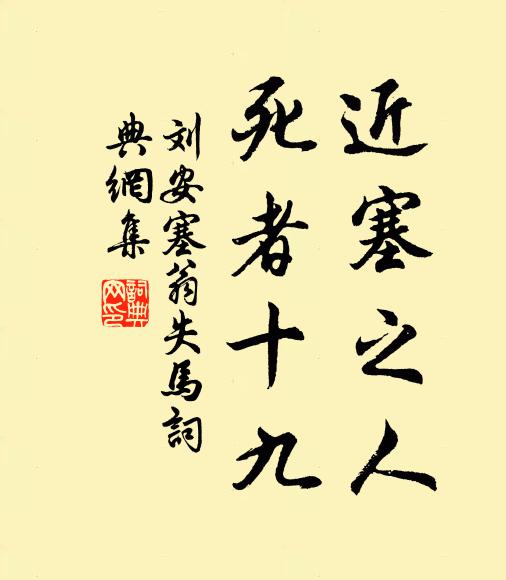 近塞之人
死者十九
刘安塞翁失馬詞
典網集
詞典
网印